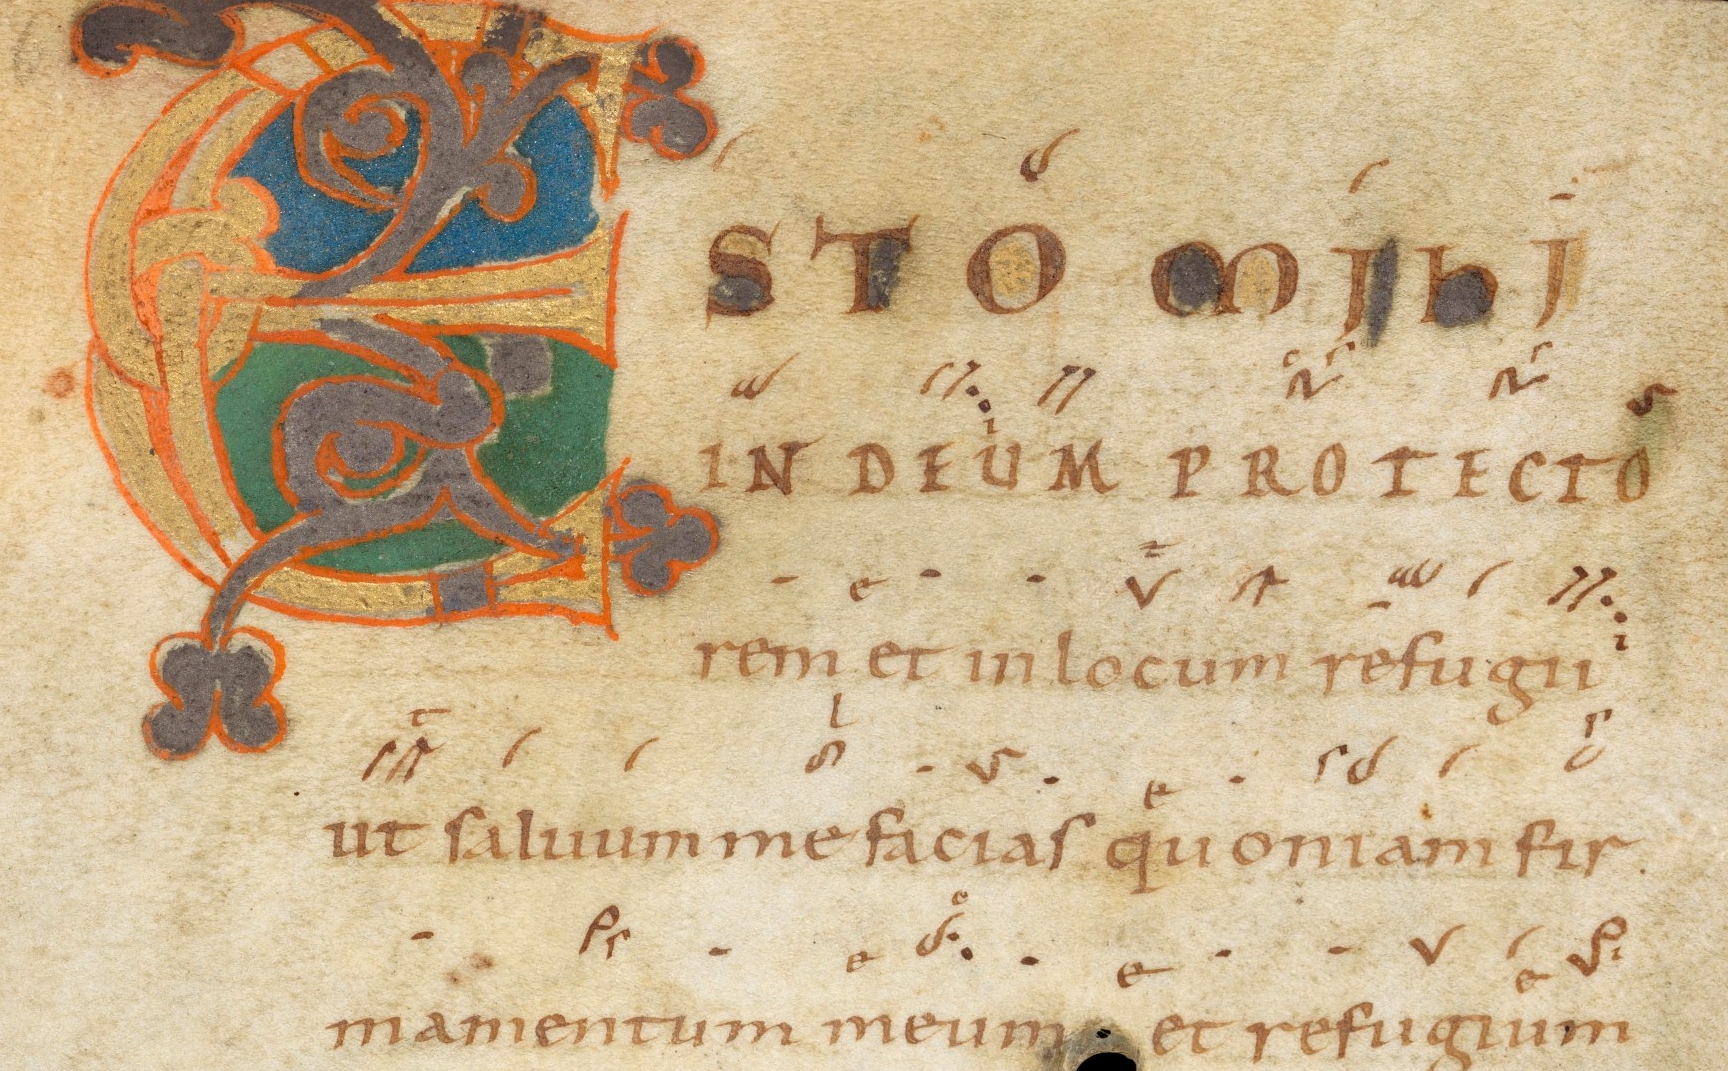 ESTO MIhI
IN DEUM PROTECTO
rem et in locum refugii
ut saluum me facias quoniam fir
mamentum meum et refugium